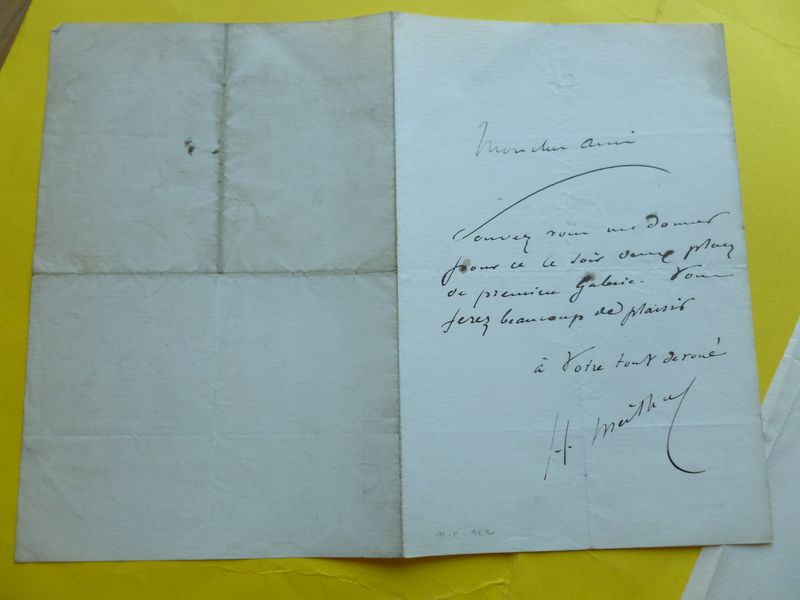 Mon cher ami
Pouvez vous me donner
pour ce le soir deux places
de première Galerie. Vous
ferez beaucoup de plaisir
à Votre tout dévoué
H.